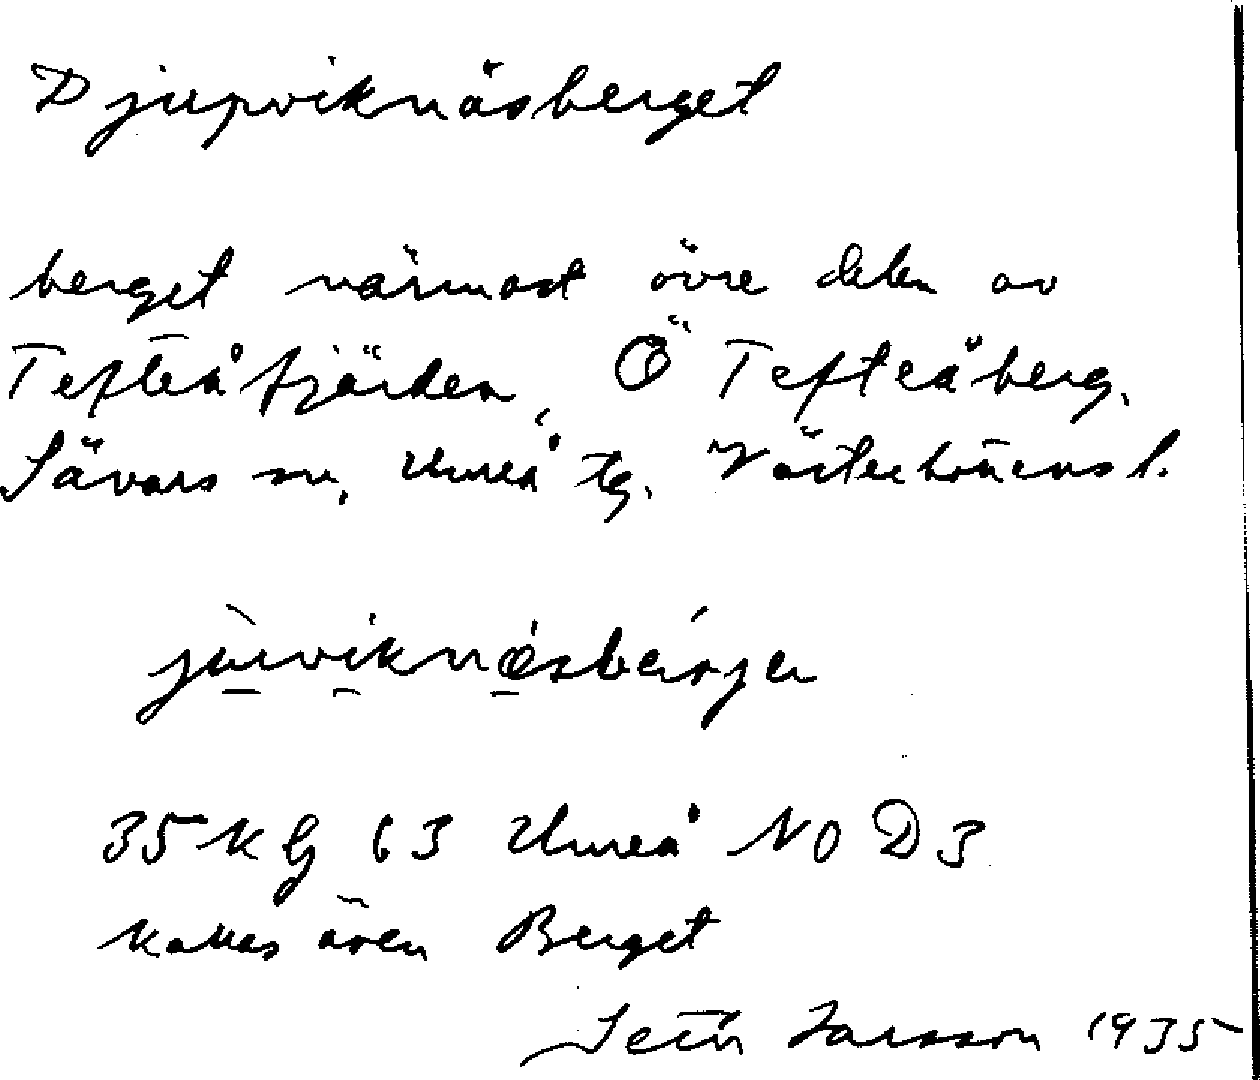 Djupviknäsberget
berget närmast övre delen av
Tefteåfjärden, Ö Tefteåberg,
Sävars sn, Umeå tg. Västerbottens l.
jùwviknésbárjə
35 KG 63 Umeå NO D3
kallas även Berget
Seth Larsson 1935